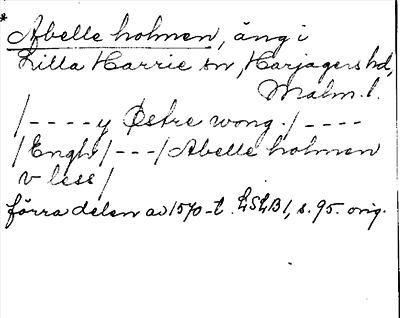 * Abelle holmen, äng i
Lilla Harrie sn, Harjagers hd,
Malm. l.
/----y Østre wong./----
/Engh/---/Abelle holmen
v less/
förra delen av 1570-t. LSLB1, s. 95. orig.